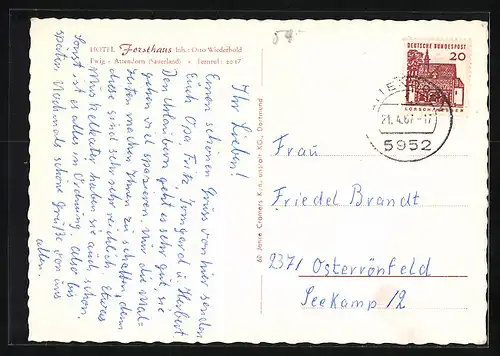 HOTEL Forsthaus Inh.: Otto Wiederhold
Ewig - Attendorn (Sauerland) - Fernruf: 2047
Ihr Lieben!
Einen schönen Gruss von hier senden
Euch Opa, Fritz, Irmgard u. Herbert.
Den geht es sehr gut, sie
gehen viel spazieren. Nur die Mal=
zeiten machen Ihnen zu schaffen, denn
diese sind sehr sehr reichlich. Etwas
Muskelkater haben sie auch schon.
Sonst ist es alles in Ordnung. Also bis
später. Nochmals schöne Grüße von uns
allen.
60 Jahre Cramers Kunstanstalt KG, Dortmund
DEUTSCHE BUNDESPOST
20
LORSCH/HESSEN
21.4.67-17
5952
Frau
Friedel Brandt
2371 Osterrönfeld
Seekamp 12